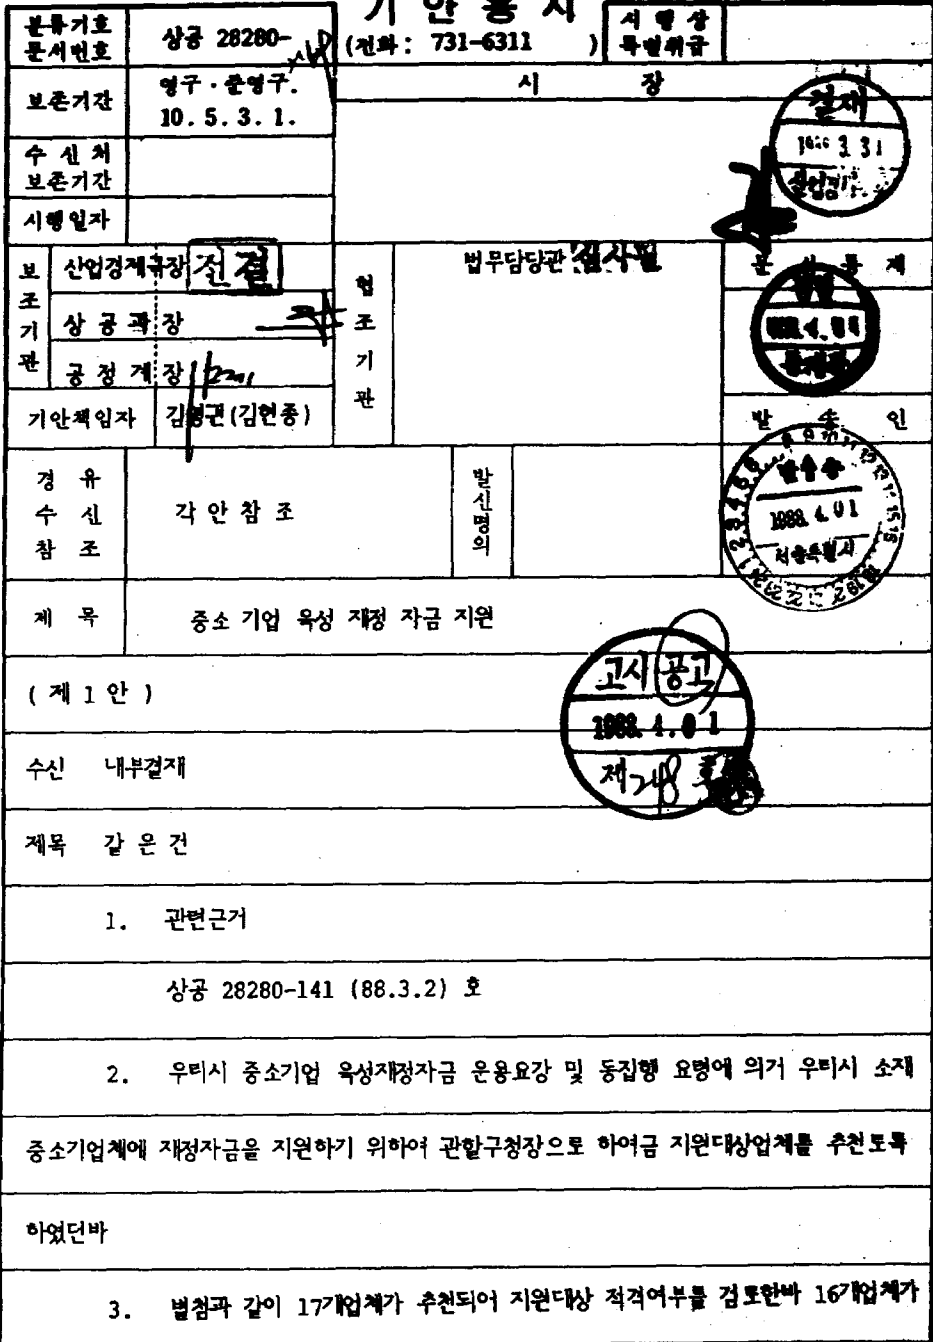 기 안 용 지
분류기호
문서번호
상공 28280-
(전화: 731-6311 )
시 행 상
특별취급
보존기간
영구·준영구.
10. 5. 3. 1.
시 장
수 신 처
보존기간
시행일자
결재
3 31
보조기관
산업경제국장 전결
상 공 과 장
공 정 계 장
기안책임자
김영권(김현종)
협조기관
법무담당관 심사필
문 서 통 제
발 송 인
1988. 4. 01
서울특별시
경 유
수 신
참 조
각 안 참 조
발신명의
제 목
중소 기업 육성 재정 자금 지원
고시 공고
1988. 4. 0 1
제 248 호
( 제 1 안 )
수신 내부결재
제목 같 은 건
1. 관련근거
상공 28280-141 (88.3.2) 호
2. 우리시 중소기업 육성재정자금 운용요강 및 동집행 요령에 의거 우리시 소재
중소기업체에 재정자금을 지원하기 위하여 관할구청장으로 하여금 지원대상업체를 추천토록
하였던바
3. 별첨과 같이 17개업체가 추천되어 지원대상 적격여부를 검토한바 16개업체가